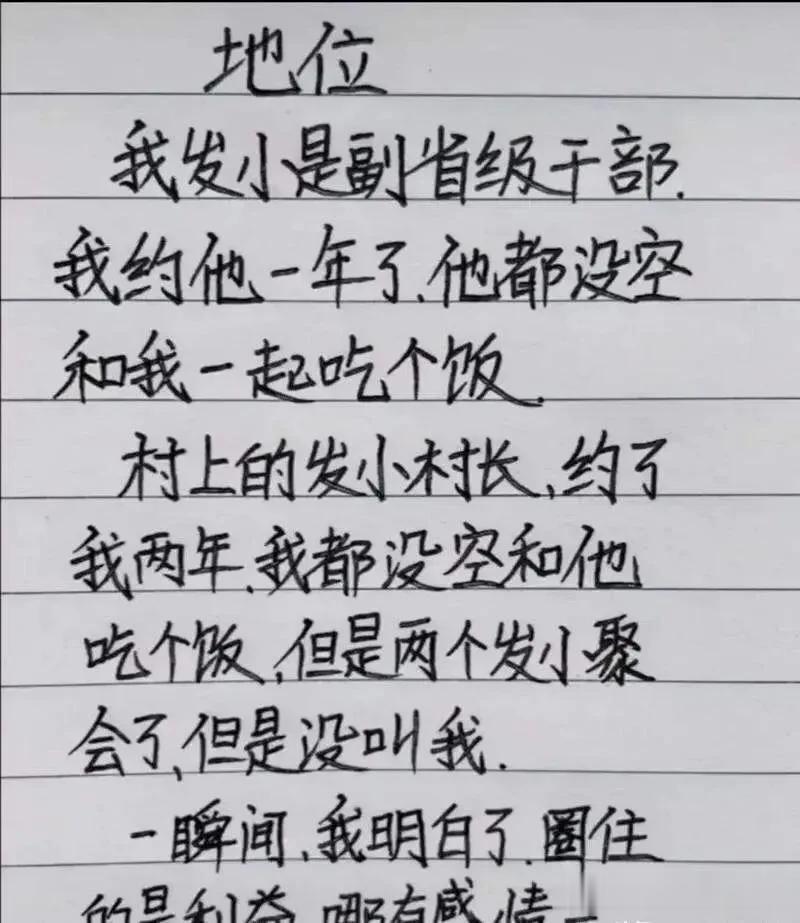 地位
我发小是副省级干部.
我约他一年了.他都没空
和我一起吃个饭.
村上的发小村长,约了
我两年.我都没空和他
吃个饭,但是两个发小聚
会了,但是没叫我.
一瞬间.我明白了.圈住
的是利益.哪有感情